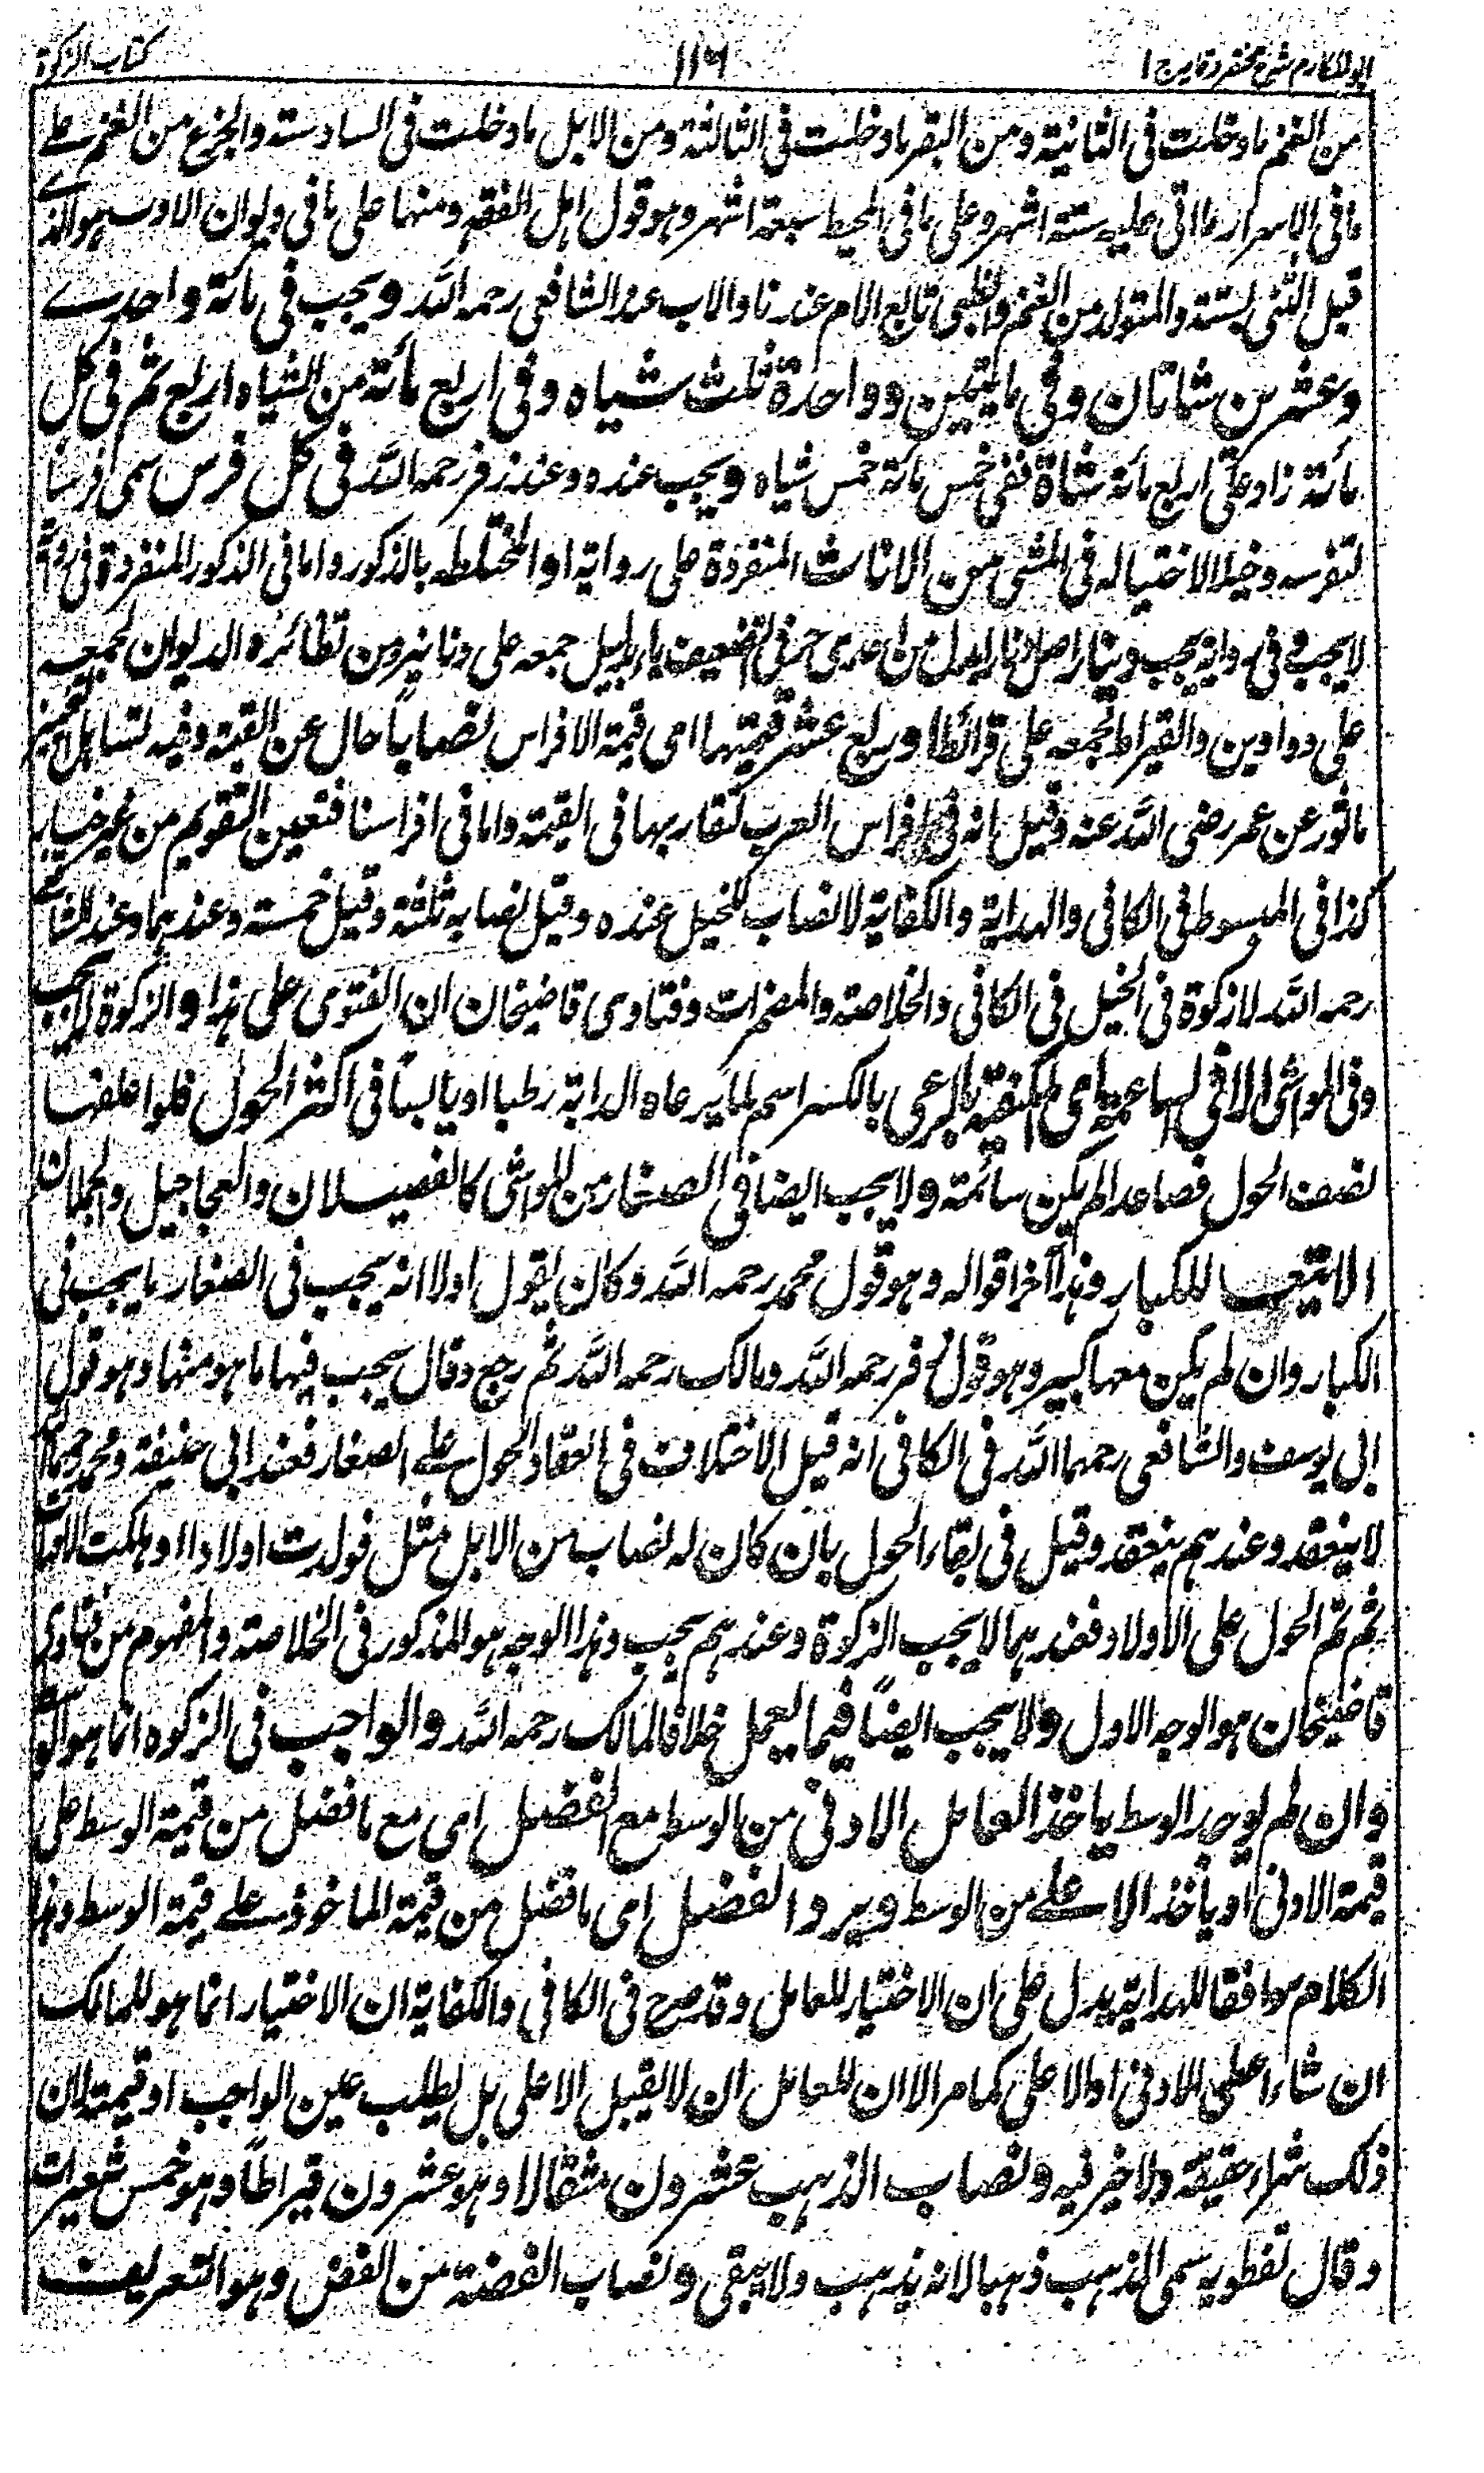 ابو المکارم شرح مختصر وقایہ ج ١
١١٦
کتاب الزکوة
من الغنم ما دخلت فی الثانیة ومن البقر ما دخلت فی الثالثة ومن الابل ما دخلت فی السادسة والجزع من الغنم علی
ما فی الاسرار ما اتی علیه ستة اشهر وعلی ما فی المحیط سبعة اشهر وهو قول اهل الفقه ومنها علی ما فی دیوان الادب هو الذی
قبل الثنی بسنة والمتولد من الغنم والظبی تابع الام عندنا والاب عند الشافعی رحمه الله ویجب فی مائة واحدے
وعشرین شاتان وفی مایتین وواحدة ثلث شیاه وفی اربع مأئة من الشیاه اربع ثم فی کل
مأئة زاد علی اربع مأئة شاة ففی خمس مائة خمس شیاه ویجب عنده وعند زفر رحمه الله فی کل فرس سمی فرسا
لتفرسه وخیلا لاختیاله فی المشی من الاناث المنفردة علی روایة او المختلطه بالذکور واما فی الذکور المنفردة فی روایة
لا یجب وفی روایة یجب دینار اصله دنار ابدل من احدی حرفی التضعیف یاء بدلیل جمعه علی دنانیر ومن نظائره الدیوان لجمعه
علی دواوین والقیراط لجمعه علی قراریط او ربع عشر قیمتها ای قیمة الافراس نصابا حال عن القیمة وفیه تساهل التخییر
ماثور عن عمر رضی الله عنه وقیل انه فی افراس العرب لتقاربها فی القیمة واما فی افراسنا فتعین التقویم من غیر خیار
کذا فی المبسوط فی الکافی والهدایة والکفایة لا نصاب للخیل عنده وقیل نصابه ثلثة وقیل خمسة وعندهما وعند الشافعی
رحمه الله لا زکوة فی الخیل فی الکافی والخلاصة والمضمرات وفتاوی قاضیخان ان الفتوی علی هذا والزکوة لا یجب
وفی المواشی الا فی السائمة ای المکتفیة بالرعی بالکسر اسم لما یرعاه الدابة رطبا او یابسا فی اکثر الحول فلو اعلفها
نصف الحول فصاعدا لم یکن سائمة ولا یجب ایضا فی الصغار من المواشی کالفصیلان والعجاجیل والحملان
الا تبعا للکبار وهذا آخر اقواله وهو قول محمد رحمه الله وکان یقول اولا انه یجب فی الصغار ما یجب فی
الکبار وان لم یکن معها کبیر وهو قول زفر رحمه الله ومالک رحمه الله ثم رجع وقال یجب فیها ما هو منها وهو قول
ابی یوسف والشافعی رحمهما الله فی الکافی انه قیل الاختلاف فی انعقاد الحول علی الصغار فعند ابی حنیفة ومحمد رحمهما الله
لا ینعقد وعندهم ینعقد وقیل فی بقاء الحول بان کان له نصاب من الابل مثل فولدت اولادا وهلکت الامهات
ثم تم الحول علی الاولاد فعندهما لا یجب الزکوة وعندهم یجب وهذا الوجه هو المذکور فی الخلاصة والمفهوم من فتاوی
قاضیخان هو الوجه الاول ولا یجب ایضاً فیما یعمل خلافا لمالک رحمه الله والواجب فی الزکوه انما هو الوسط
وان لم یوجد الوسط یاخذ العامل الادنی من الوسط مع الفضل ای مع ما فضل من قیمة الوسط علی
قیمة الادنی او یأخذ الاعلے من الوسط ویرد الفضل ای ما فضل من قیمة الماخوذ علے قیمة الوسط وهذا
الکلام موافقا للهدایة یدل علی ان الاختیار للعامل وقد صرح فی الکافی والکفایة ان الاختیار انما هو للمالک
ان شاء اعطی الادنی او الاعلی کما مر الا ان للعامل ان لا یقبل الاعلی بل یطلب عین الواجب او قیمته لان
ذلک شراء حقیقة ولا خیر فیه ونصاب الذهب عشرون مثقالا وهو عشرون قیراطاً وهو خمس شعیرات
وقال نفطویه سمی الذهب ذهبا لانه یذهب ولا یبقی ونصاب الفضة من الفض وهو التفریق